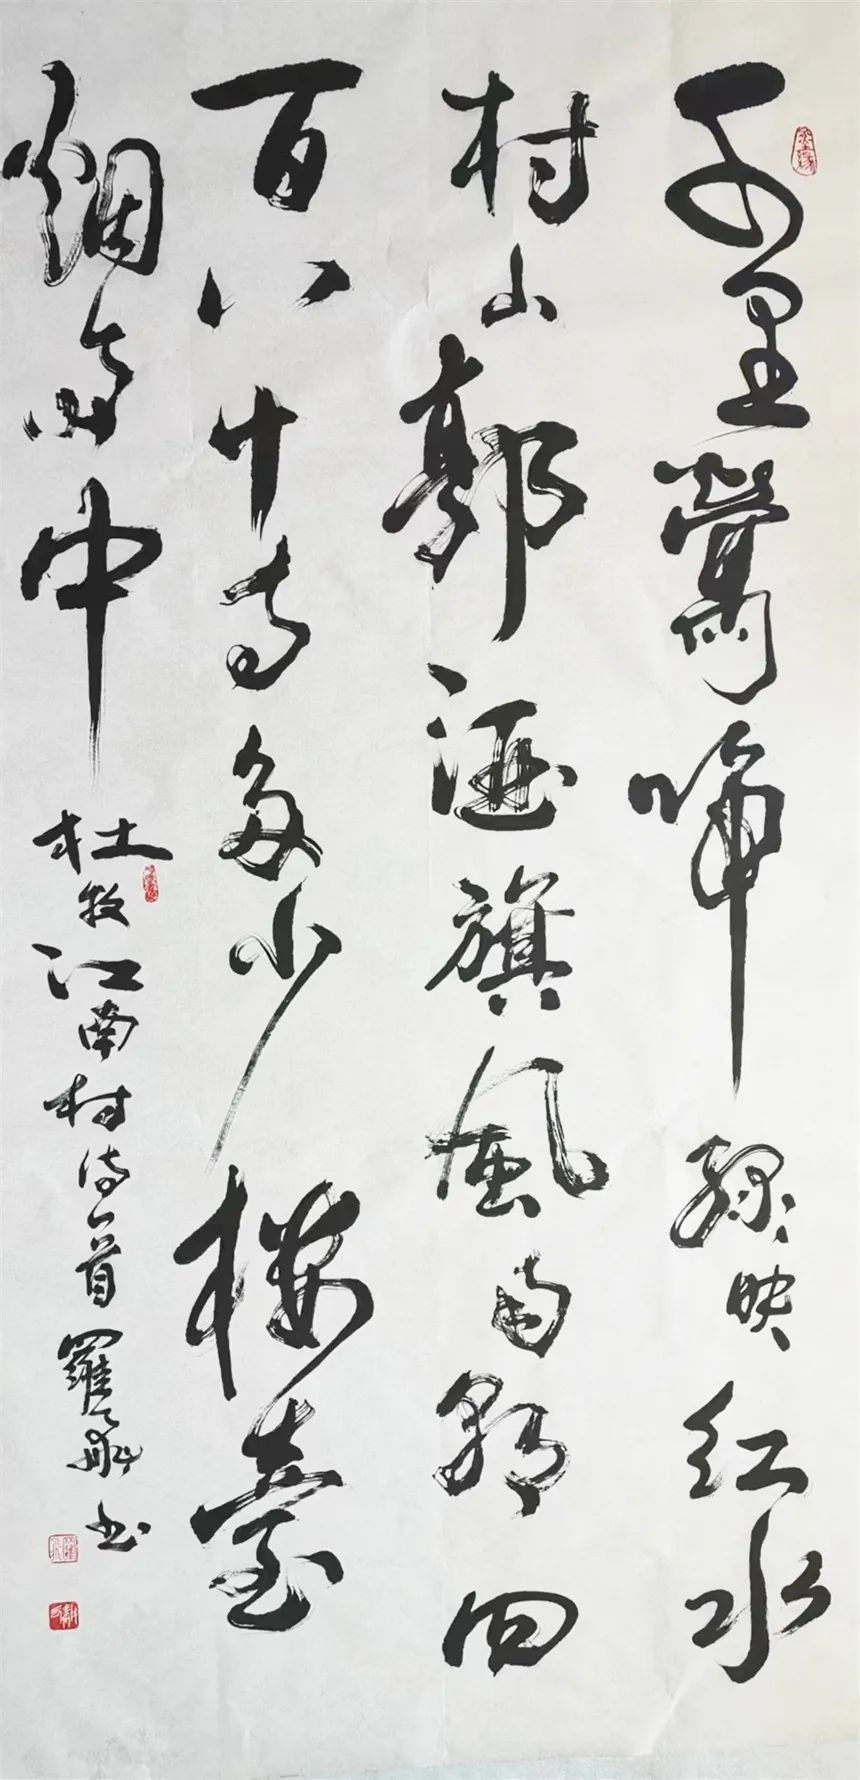 千里鶯啼綠映红水
村山郭酒旗風南朝四
百八十寺多少樓臺
烟雨中
杜牧江南村诗一首 羅 书